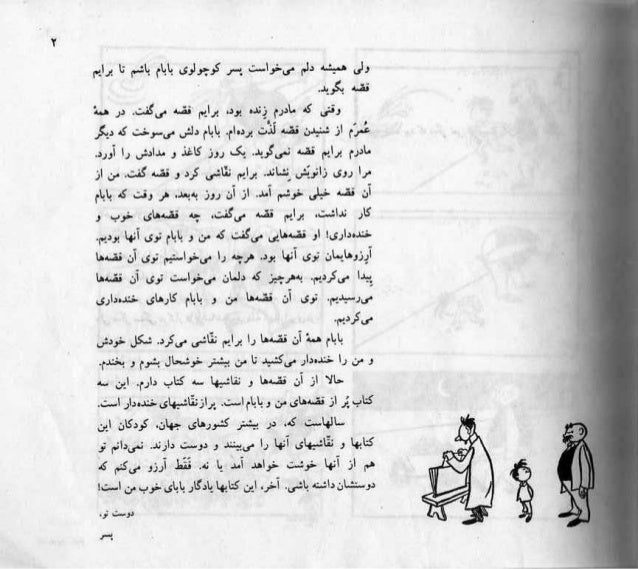 ۲
ولی همیشه دلم می‌خواست پسر کوچولوی بابام باشم تا برایم
قصّه بگوید.
وقتی که مادرم زِنده بود، برایم قصّه می‌گفت. در همهٔ
عُمرَم از شنیدن قصّه لَذّت برده‌ام. بابام دلش می‌سوخت که دیگر
مادرم برایم قصّه نمی‌گوید. یک روز کاغذ و مدادش را آورد.
مرا روی زانویَش نِشاند. برایم نقّاشی کرد و قصّه گفت. من از
آن قصّه خیلی خوشم آمد. از آن روز به‌بعد، هر وقت که بابام
کار نداشت، برایم قصّه می‌گفت، چه قصّه‌های خوب و
خنده‌داری! او قصّه‌هایی می‌گفت که من و بابام توی آنها بودیم.
آرِزوهایمان توی آنها بود. هرچه را می‌خواستیم توی آن قصّه‌ها
پیدا می‌کردیم. به‌هرچیز که دلمان می‌خواست توی آن قصّه‌ها
می‌رسیدیم. توی آن قصّه‌ها من و بابام کارهای خنده‌داری
می‌کردیم.
بابام همهٔ آن قصّه‌ها را برایم نقّاشی می‌کرد. شکل خودش
و من را خنده‌دار می‌کشید تا من بیشتر خوشحال بشوم و بخندم.
حالا از آن قصّه‌ها و نقاشیها سه کتاب دارم. این سه
کتاب پُر از قصّه‌های من و بابام است. پراز نقّاشیهای خنده‌دار است.
سالهاست که، در بیشتر کشورهای جهان، کودکان این
کتابها و نقّاشیهای آنها را می‌بینند و دوست دارند. نمی‌دانم تو
هم از آنها خوشت خواهد آمد یا نه. فَقَط آرزو می‌کنم که
دوستشان داشته باشی. آخر، این کتابها یادگار بابای خوب من است!
دوست تو،
پسر